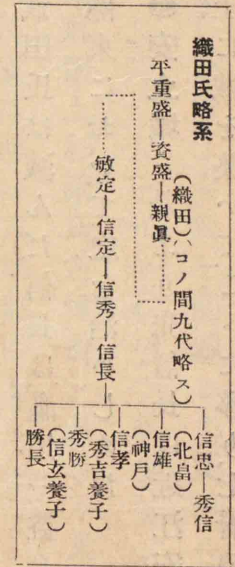 織田氏略系
平重盛―資盛―親眞
(織田)(コノ間九代略ス)
敏定―信定―信秀―信長
信忠―秀信
(北畠)
信雄
(神戸)
信孝
(秀吉養子)
秀勝
(信玄養子)
勝長